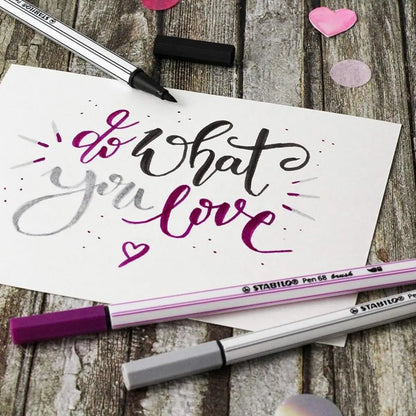 do what
you love
STABILO® Pen 68 brush
STABILO®